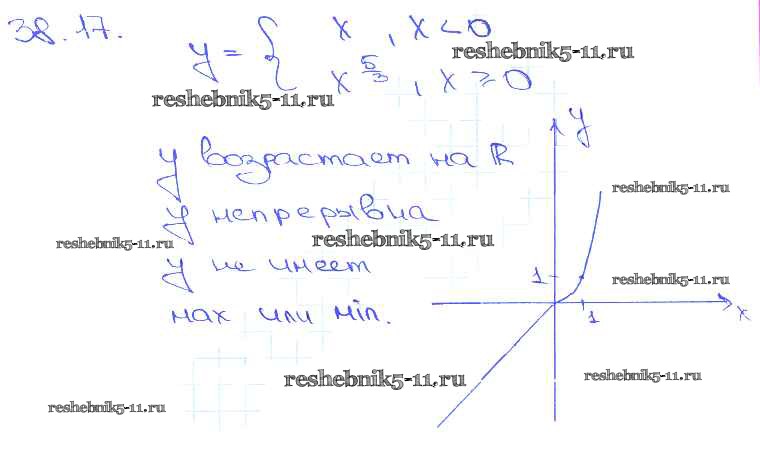 38.17.
y = { x , x < 0
reshebnik5-11.ru
x^(5/3) , x ≥ 0
reshebnik5-11.ru
y
y возрастает на R
reshebnik5-11.ru
y непрерывна
reshebnik5-11.ru
reshebnik5-11.ru
y не имеет
1
reshebnik5-11.ru
max или min.
1
x
reshebnik5-11.ru
reshebnik5-11.ru
reshebnik5-11.ru